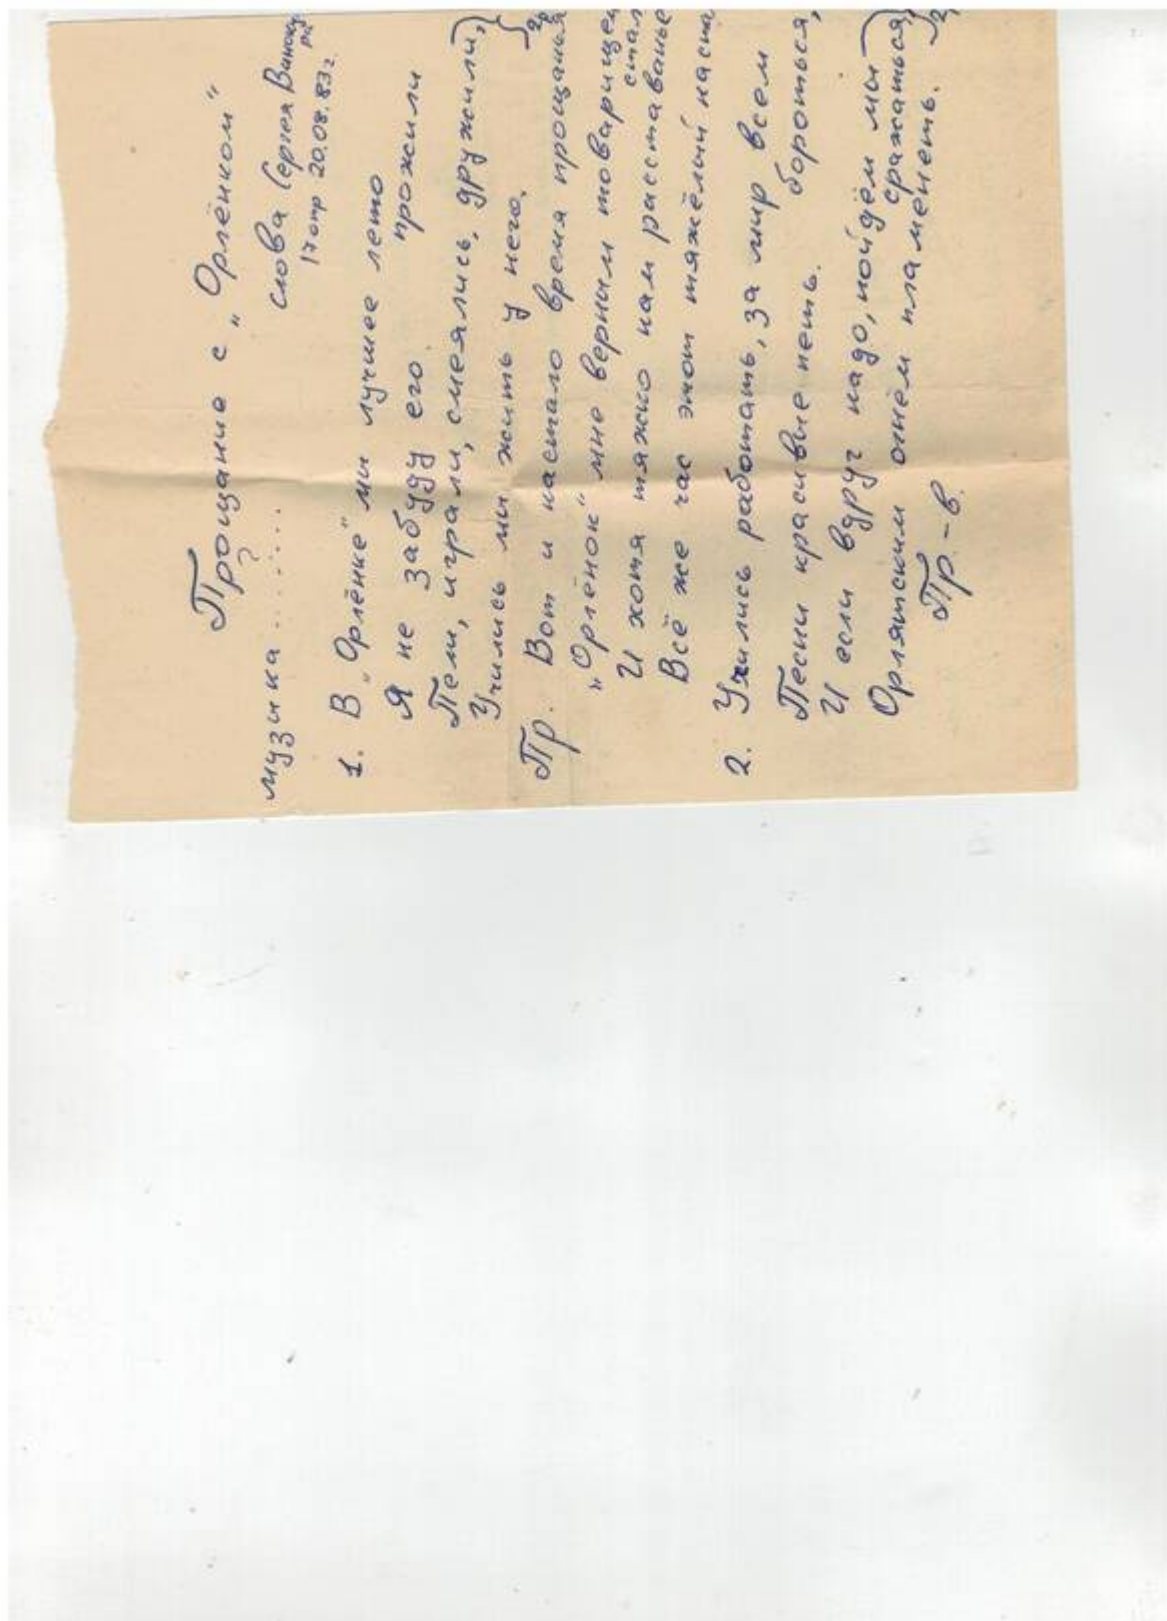 Прощание с „Орлёнком"
музыка ..?.....
слова Сергея
17 отр 20.08.83г.
1. В „Орлёнке" мы лучшее лето
прожили
Я не забуду его.
Пели, играли, смеялись, дружили,}
Учились мы жить у него. } 2
Пр. Вот и настало время прощанья
„Орлёнок" мне верным товарищем
стал
И хотя тяжко нам расставанье
Всё же час этот тяжёлый настал
2. Учились работать, за мир всем
бороться,
Песни красивые петь.
И если вдруг надо, пойдём мы}
сражаться,} 2
Орлятским огнём пламенеть.
Пр.-в.